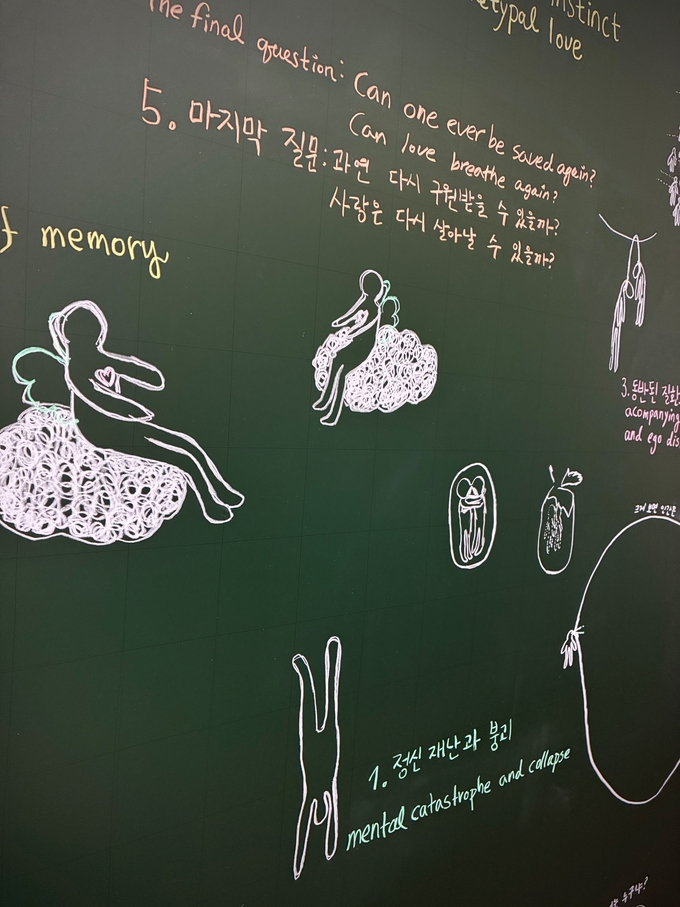 instinct
love
The final question: Can one ever be saved again?
Can love breathe again?
5. 마지막 질문: 과연 다시 구원받을 수 있을까?
사랑은 다시 살아날 수 있을까?
memory
3. 동반된
acompanying
and ego
1. 정신 재난과 붕괴
mental catastrophe and collapse